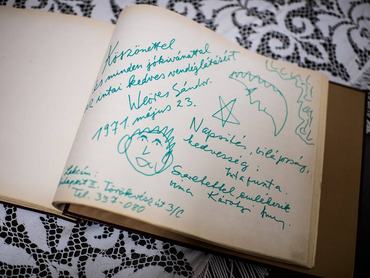 Köszönettel
és minden jókívánattal
az intai kedves vendéglátásért
Weöres Sándor.
1971. május 23.
Napsütés, világosság,
kedvesség:
Inta puszta.
Szeretettel emlékezik
Károlyi Amy.
Lakcím:
Budapest II. Törökvész út 3/c
Tel. 357-080